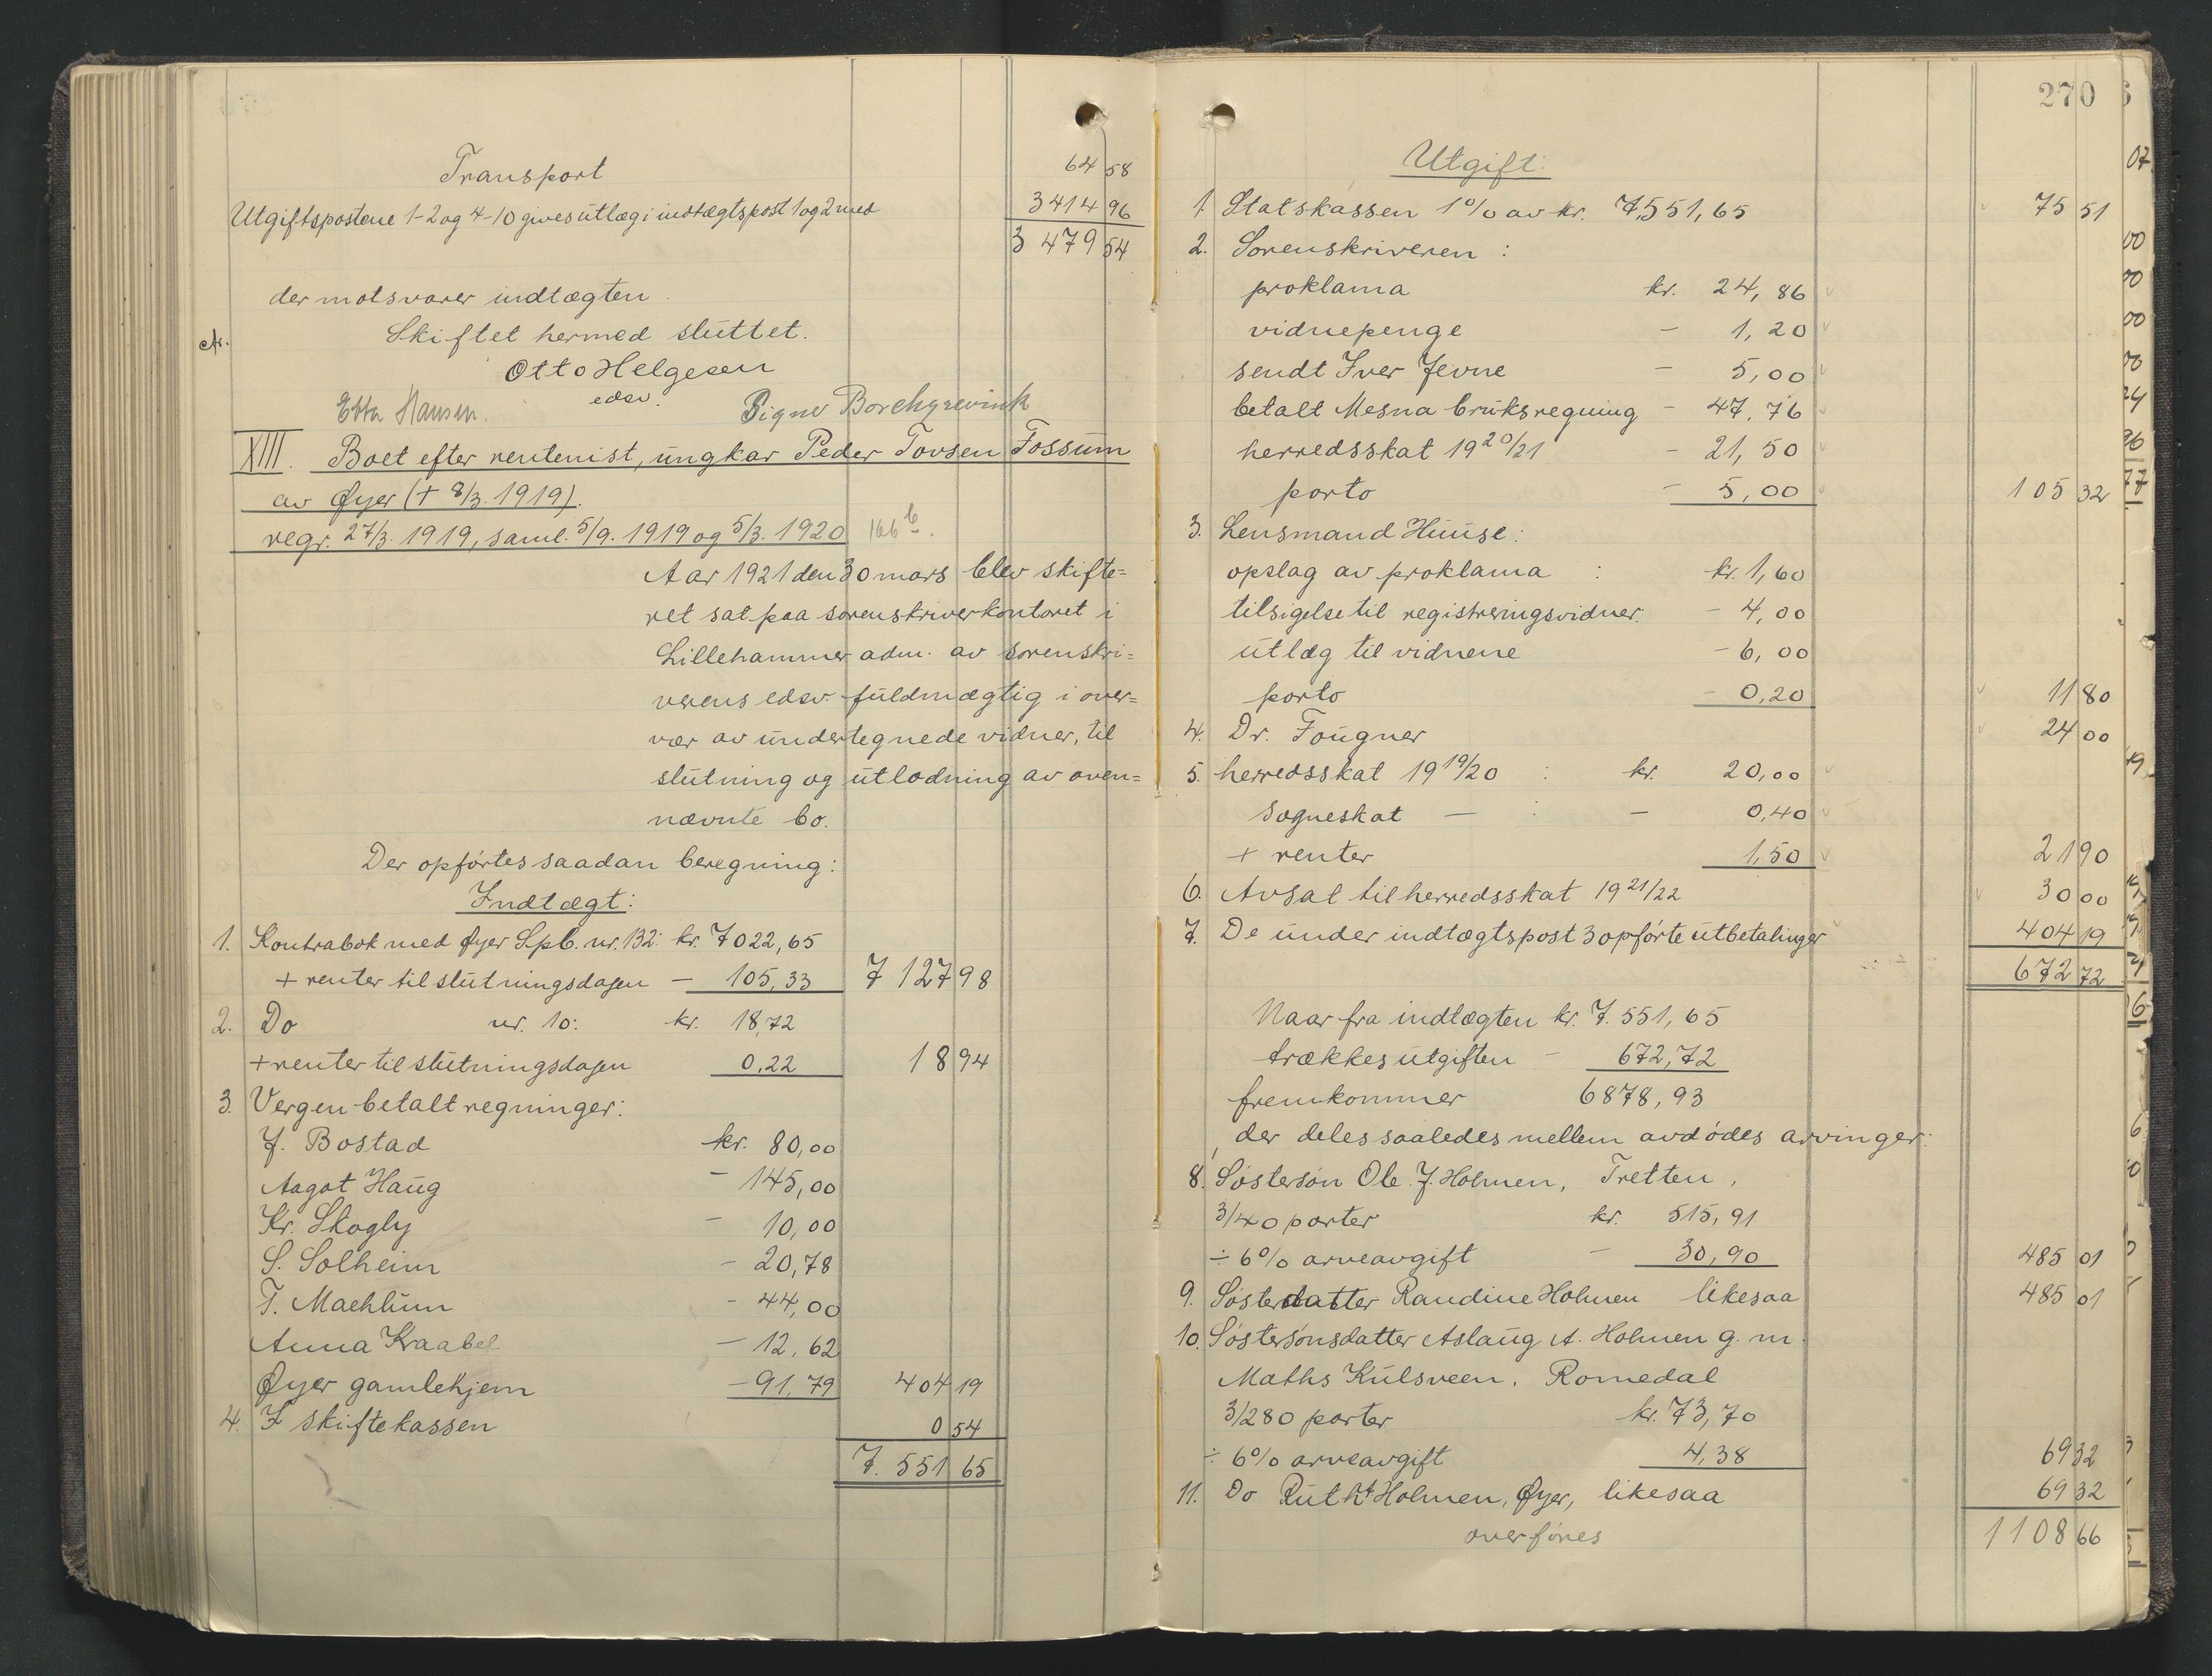 Transport 64 58
Utgiftspostene 1-2 og 4-10 gives utlæg i indtægtspost 1 og 2 med 3414 96
3 479 54
der motsvarer indtægten.
Skiftet hermed sluttet.
Otto Helgesen
edsv.
Ebba Hansen. Signe Borchgrevink
XIII. Boet efter rentenist, ungkar Peder Tovsen Fossum
av Øyer († 8/3. 1919).
regr. 27/3. 1919, saml. 5/9. 1919 og 5/3. 1920 166 b.
Aar 1921 den 30 mars blev skifte=
ret sat paa sorenskriverkontoret i
Lillehammer adm. av sorenskri=
verens edsv. fuldmægtig i over=
vær av undertegnede vidner, til
slutning og utlodning av oven=
nævnte bo.
Der opførtes saadan beregning:
Indtægt:
1. Kontrabok med Øyer Spb. nr. 132: kr. 7022,65
+ renter til slutningsdagen - 105,33 7 127 98
2. Do nr. 10: kr. 18,72
+ renter til slutningsdagen 0,22 18 94
3. Vergen betalt regninger:
J. Bostad kr. 80,00
Aagot Haug - 145,00
Kr. Skogly - 10,00
S. Solheim - 20,78
T. Maehlum - 44,00
Anna Kraabel - 12,62
Øyer gamlehjem - 91,79 404 19
4. I skiftekassen 0 54
7. 551 65
270
Utgift:
1. Statskassen 1% av kr. 7,551,65 75 51
2. Sorenskriveren :
proklama kr. 24,86
vidnepenge - 1,20
sendt Iver Jevne - 5,00
betalt Mesna bruksregning - 47,76
herredsskat 19 20/21 - 21,50
porto - 5,00 105 32
3. Lensmand Huuse:
opslag av proklama : kr. 1,60
tilsigelse til registreringsvidner. - 4,00
utlæg til vidnene - 6,00
porto - 0,20 11 80
4. Dr. Fougner 24 00
5. herredsskat 19 19/20 : kr. 20,00
sogneskat — : — 0,40
+ renter 1,50 21 90
6. Avsat til herredsskat 19 21/22 30 00
7. De under indtægtspost 3 opførte utbetalinger 404 19
672 72
Naar fra indtægten kr. 7.551,65
trækkes utgiften - 672,72
fremkommer 6878,93
der deles saaledes mellem avdødes arvinger:
8. Søstersøn Ole J. Holmen, Tretten,
3/40 parter kr. 515,91
÷ 6% arveavgift - 30,90 485 01
9. Søsterdatter Randine Holmen likesaa 485 01
10. Søstersønsdatter Aslaug A. Holmen g. m.
Maths Kulsveen, Romedal
3/280 parter kr. 73,70
÷ 6% arveavgift 4,38 69 32
11. Do Ruth Holmen, Øyer, likesaa 69 32
overføres 1108 66